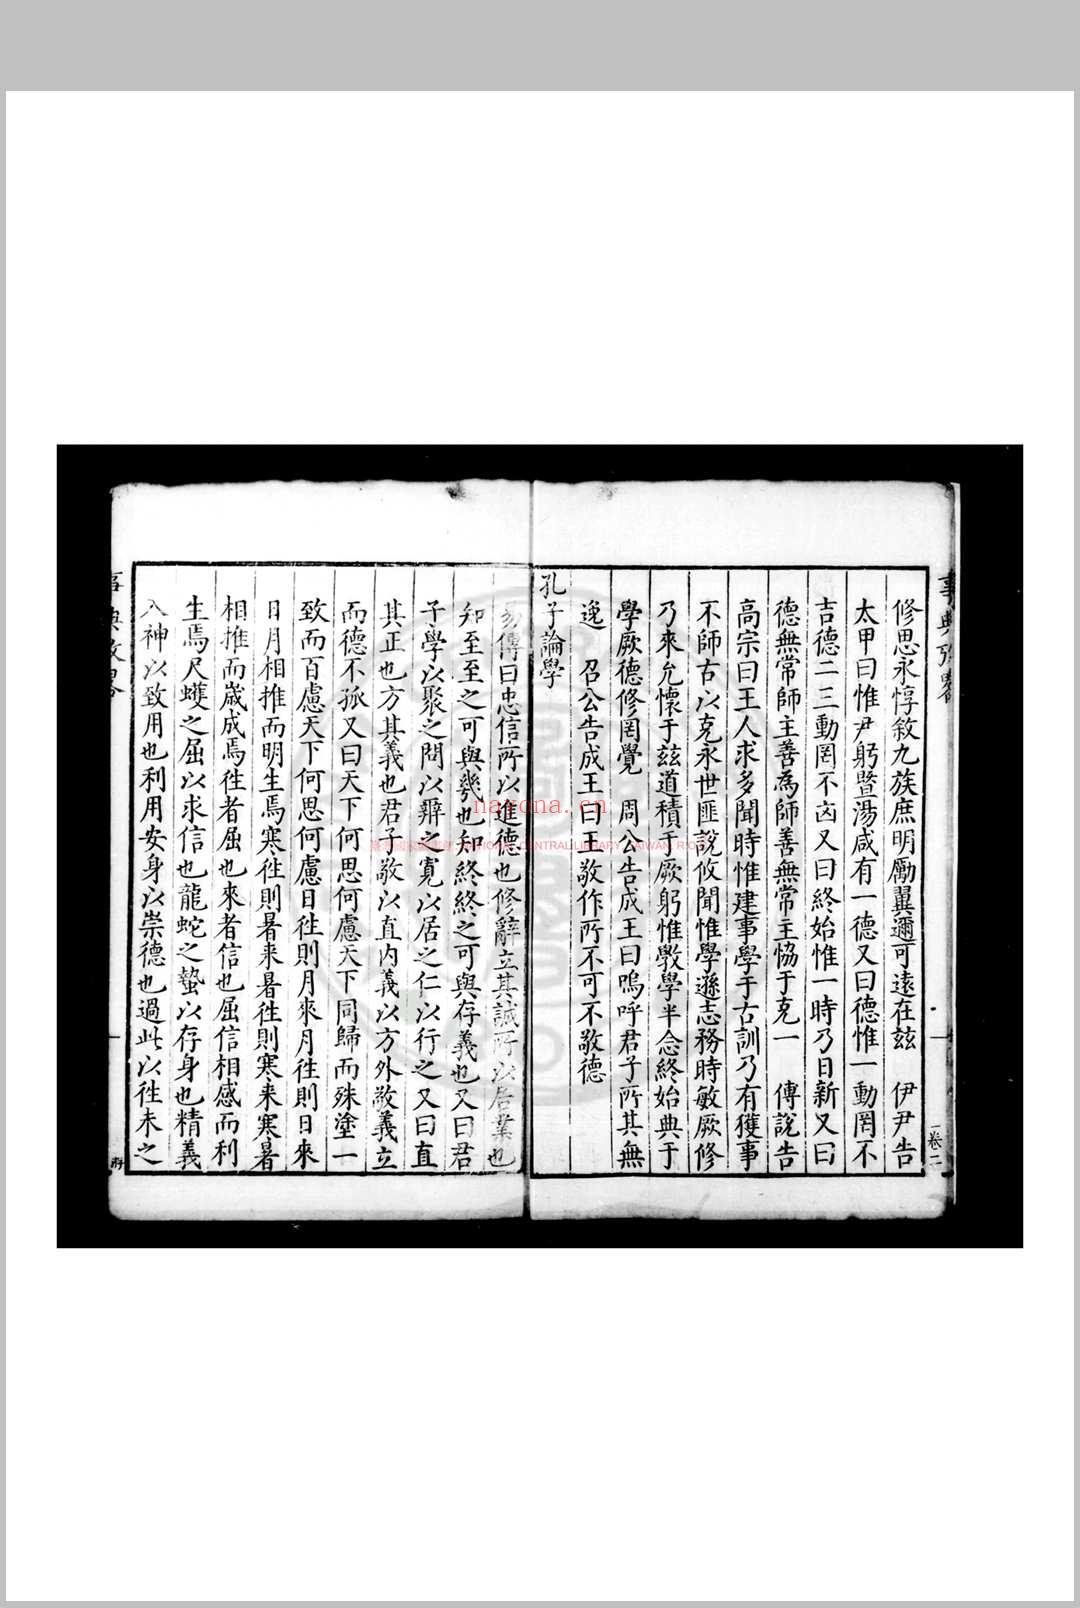 修思永惇敘九族庶明勵翼邇可遠在兹　伊尹告
太甲曰惟尹躬暨湯咸有一德又曰德惟一動罔不
吉德二三動罔不凶又曰終始惟一時乃日新又曰
德無常師主善爲師善無常主恊于克一　傳說告
高宗曰王人求多聞時惟建事學于古訓乃有獲事
不師古以克永世匪說攸聞惟學遜志務時敏厥修
乃來允懷于兹道積于厥躬惟斆學半念終始典于
學厥德修罔覺　周公告成王曰嗚呼君子所其無
逸　召公告成王曰王敬作所不可不敬德
孔子論學
易傳曰忠信所以進德也修辭立其誠所以居業也
知至至之可與幾也知終終之可與存義也又曰君
子學以聚之問以辯之寬以居之仁以行之又曰直
其正也方其義也君子敬以直内義以方外敬義立
而德不孤又曰天下何思何慮天下同歸而殊塗一
致而百慮天下何思何慮日徃則月來月徃則日來
日月相推而明生焉寒徃則暑来暑徃則寒来寒暑
相推而歲成焉徃者屈也來者信也屈信相感而利
生焉尺蠖之屈以求信也龍蛇之蟄以存身也精義
入神以致用也利用安身以崇德也過此以徃未之
卷二
nayona.cn
NATIONAL CENTRAL LIBRARY, TAIWAN, R.O.C